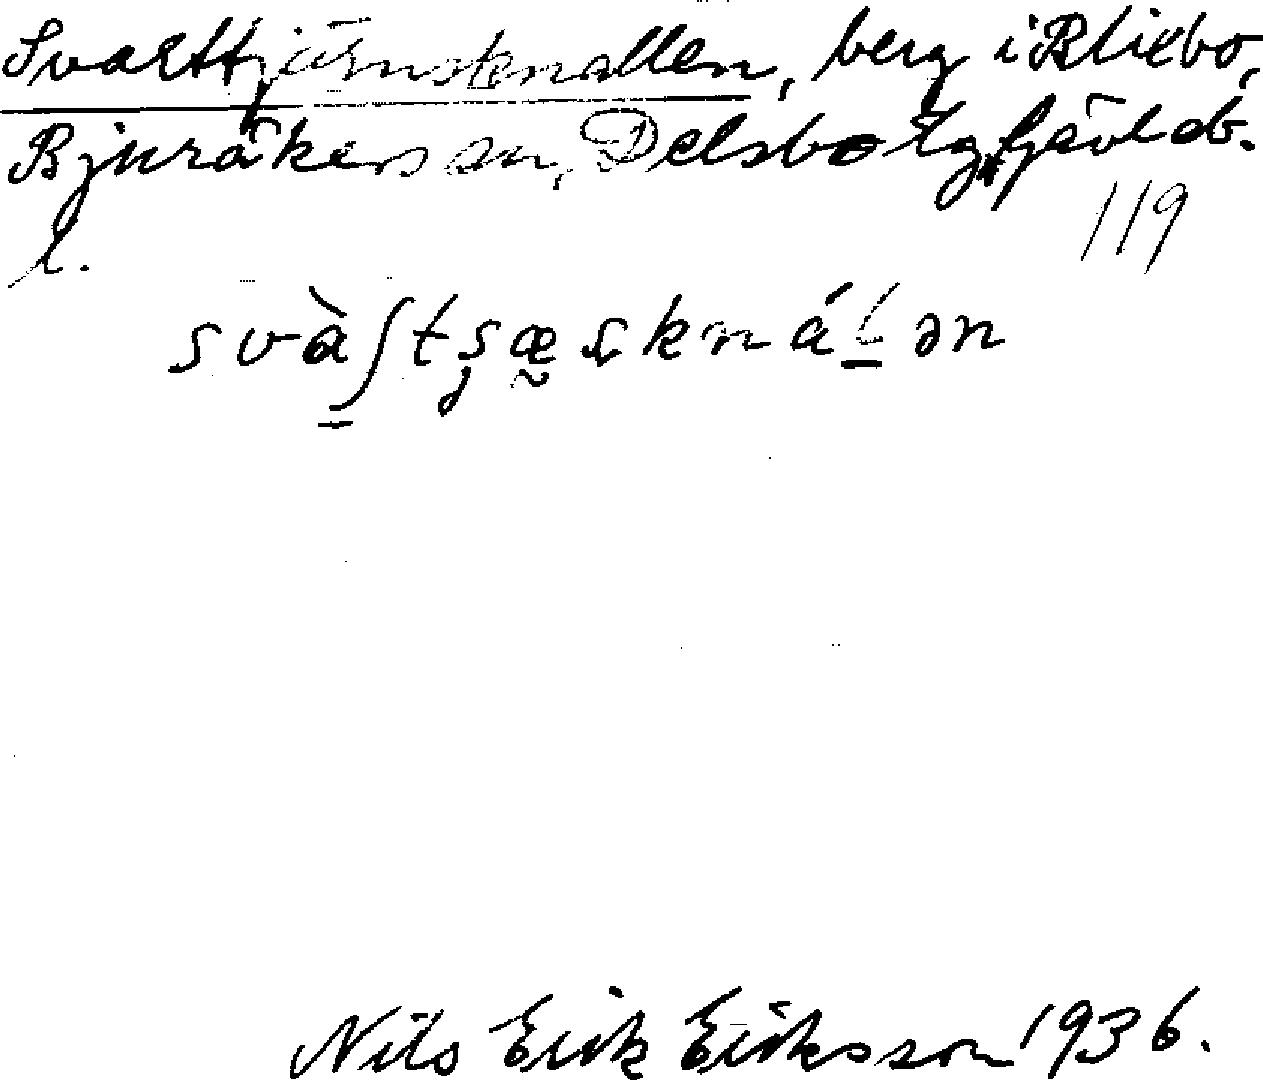 Svarttjärnsknallen, berg i Bliebo,
Bjuråkers sn, Delsbo tg, Gävleb.
l.
119
Nils Erik Eriksson 1936.